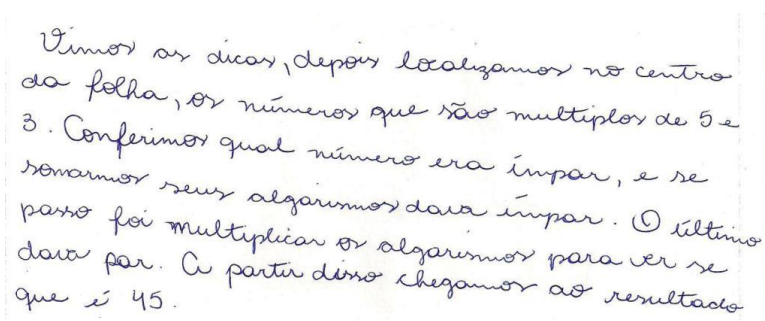 Vimos as dicas, depois localizamos no centro
da folha, os números que são multiplos de 5 e
3. Conferimos qual número era ímpar, e se
somarmos seus algarismos dava ímpar. O último
passo foi multiplicar os algarismos para ver se
dava par. A partir disso chegamos ao resultado
que é 45.